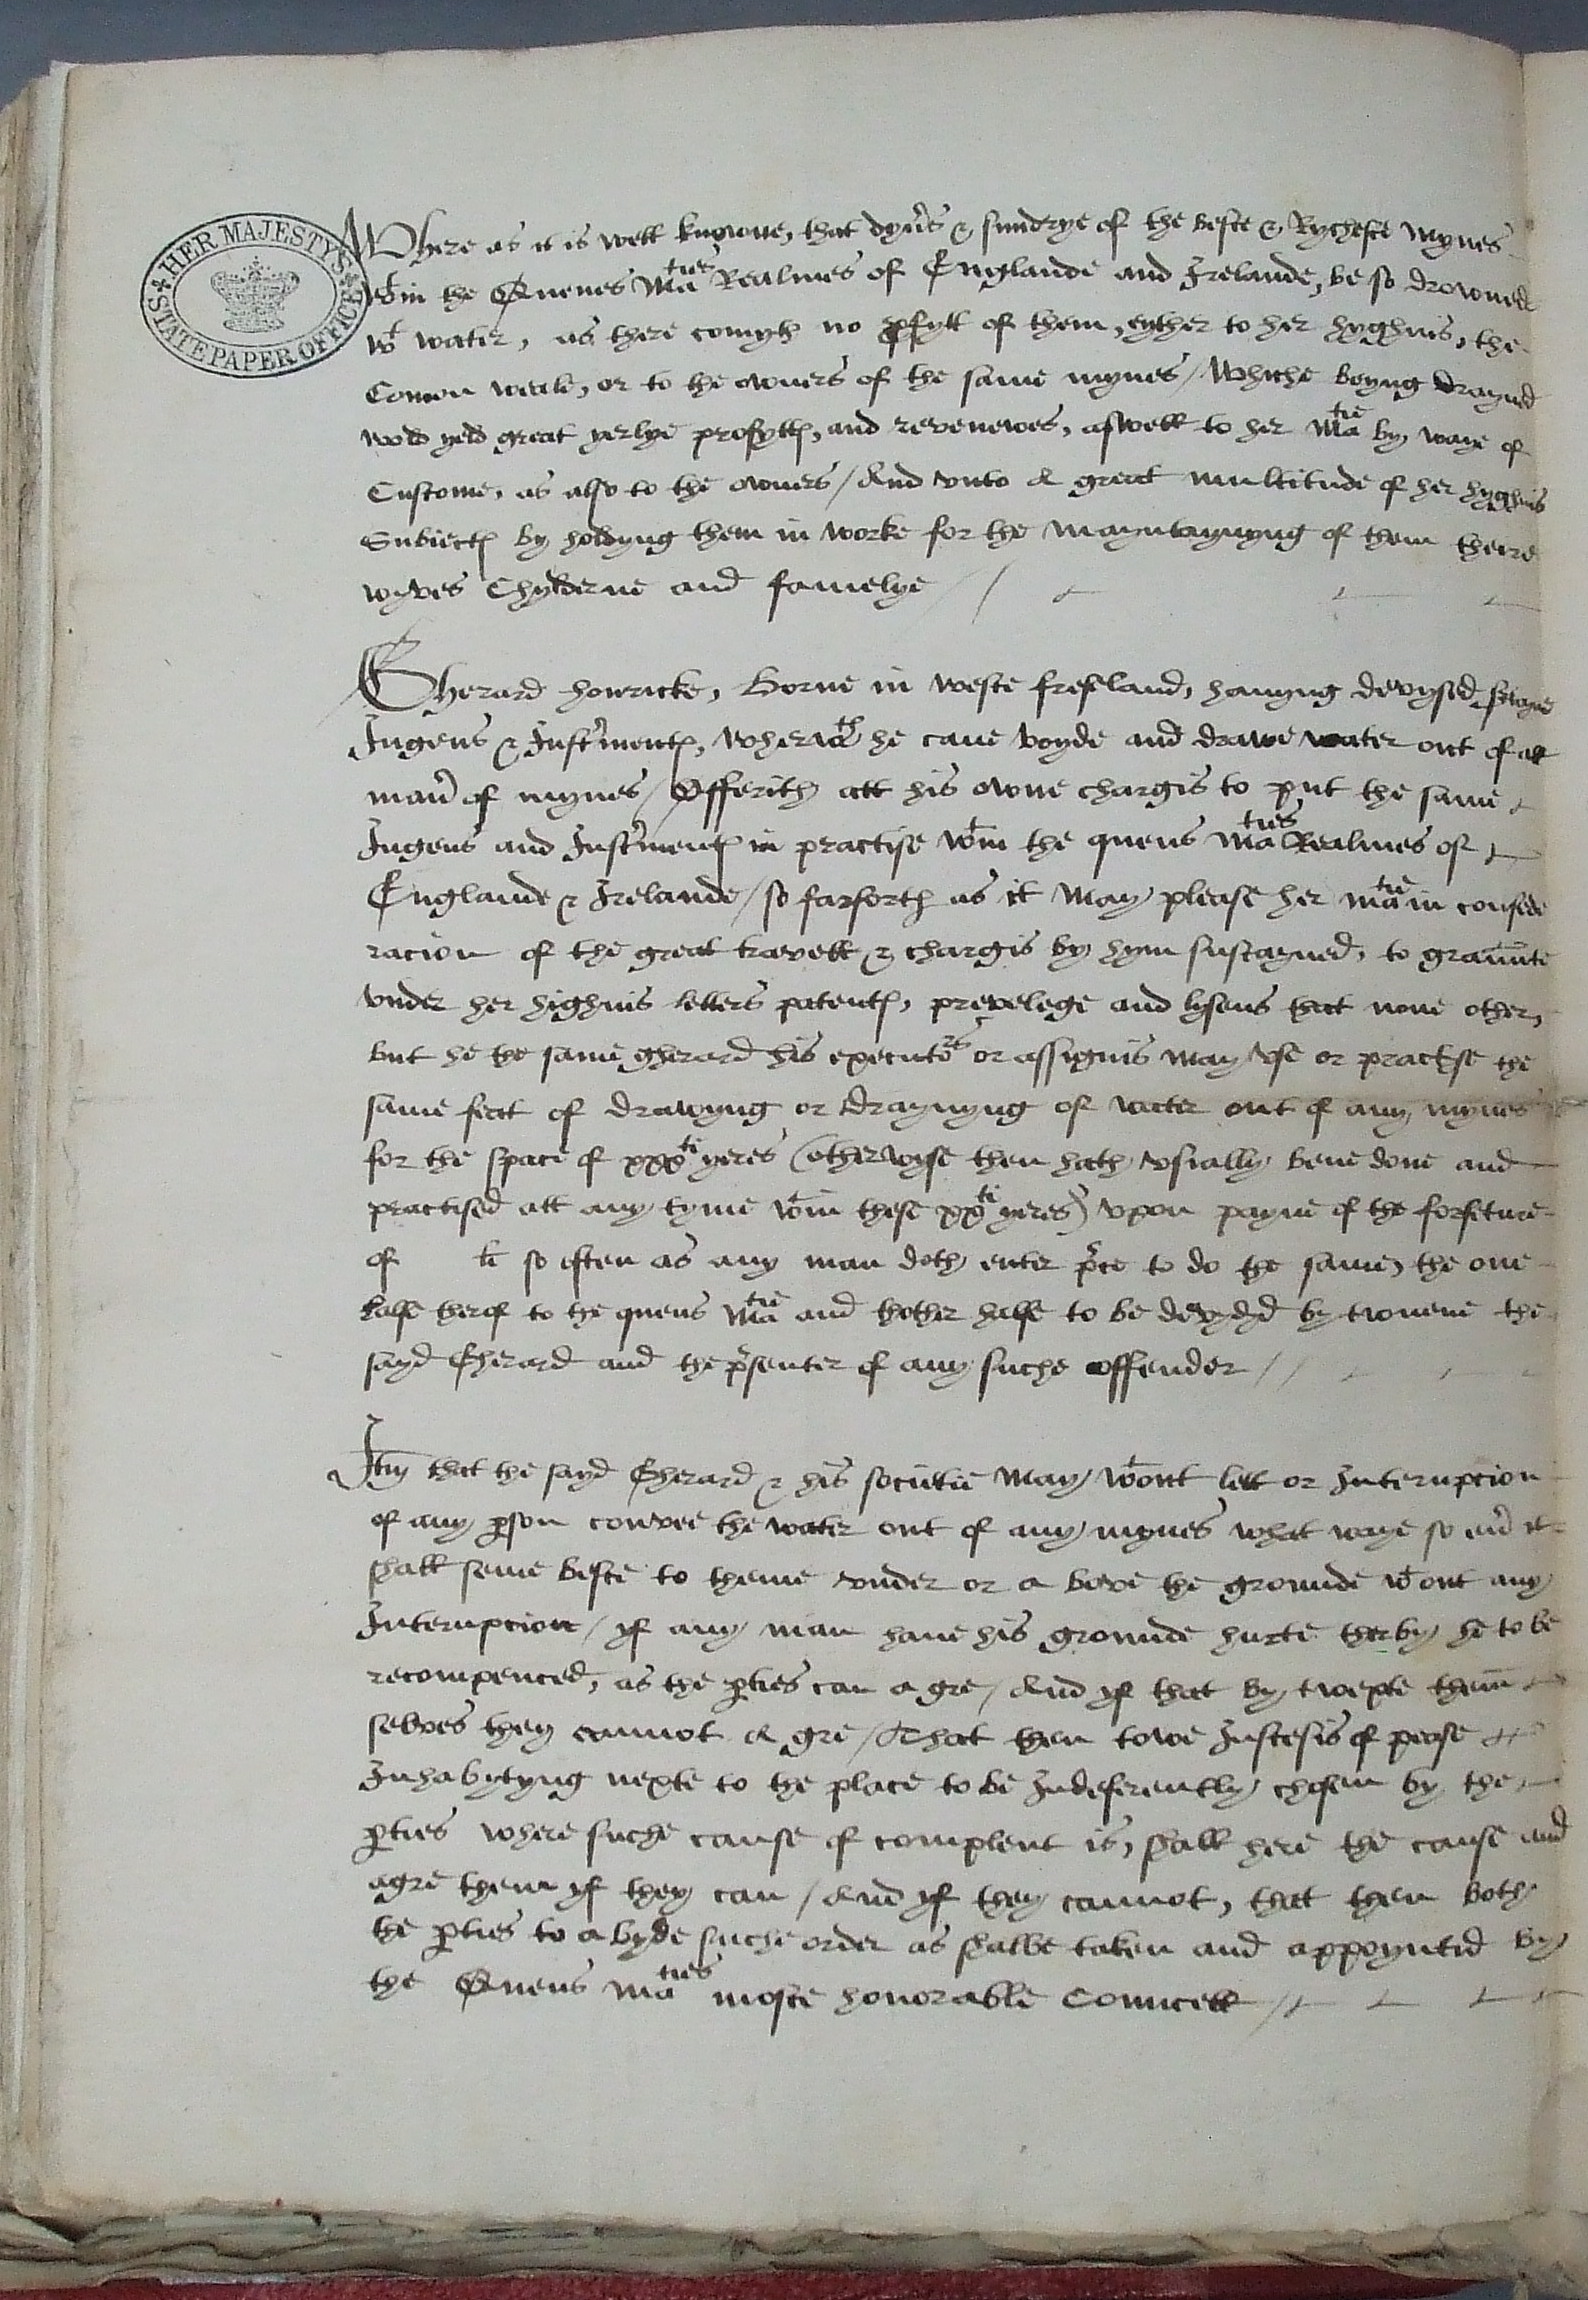 HER MAJESTY'S
STATE PAPER OFFICE
Where as it is well knowne, that dyv's & sundrye of the beste & Rycheste mynes
wt in the Quenes Maties Realmes of Englande and Irelande, be so drowned
wt water, as there comyth no pfytt of them, eyther to her hyghnis, the
Comon weale, or to the owners of the same mynes / Whiche beyng drayned
wold yeld great yerlye profytts, and revenewes, aswell to her Matie by waye of
Custome, as also to the owners / And vnto a great multitude of her hyghnis
Subiects by holdyng them in worke for the mayntaynyng of them theire
wyves Chylderne and famelye /
Gherard honricke, Borne in weste fresland, hauyng devysed
Ingens & Instruments, wherwth he cane voyde and drawe water out of all
man' of mynes / Offerith att his owne chargis to put the same
Ingens and Instruments in practise wtin the quens Maties Realmes of
Englande & Irelande / so farforth as it May please her Matie in consede
racion of the great travell & chargis by hym sustayned, to graunte
vnder her highnis letters patents, prevelege and lysens that none other,
but he the same gherard his executors or assignis may vse or practyse the
same feat of drawyng or draynyng of water out of any mynes
for the space of xxxti yeres (otherwyse then hath vsially bene done and
practised att any tyme wtin these xxti yeres) vpon payne of the forfeture
of li so often as any man doth enter p'ce to do the same, the one
halfe therof to the quens Matie and thother halfe to be devydyd by twene the
sayd Gherard and the p'senter of any suche offender //
Itm that the sayd Gherard & his societie May wtout lett or Interupcion
of any pson convee the water out of any mynes what waye so eu' it
shall seme beste to theme vnder or a bove the grounde wtout any
Interupcion / yf any man haue his grounde hurte therby he to be
recompenced, as the pties can a gre / And yf that by twexte them
selves they cannot a gre / That then towe Justesis of pease
Inhabytyng nexte to the place to be Indeferently chosen by the
pties where suche cause of complent is, shall here the cause and
agre them yf they can / And yf they cannot, that then both
the pties to abyde suche order as shalbe taken and appoyntid by
the Quens Maties moste honorable Councell /